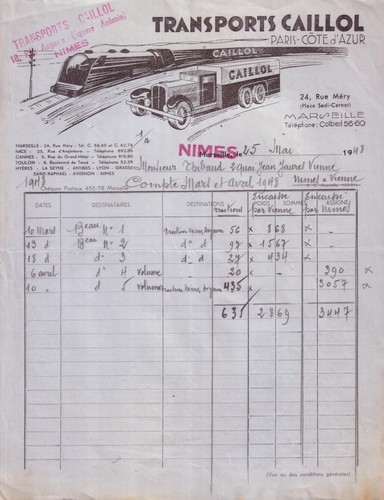 TRANSPORTS CAILLOL
NIMES
TRANSPORTS CAILLOL
PARIS-CÔTE d'AZUR
CAILLOL
CAILLOL
24, Rue Méry
(Place Sadi-Carnot)
MARSEILLE
Téléphone: Colbert 56-60
MARSEILLE - 24, Rue Méry - Tél. C. 56-60 et C. 62-74
NICE - 23, Rue d'Angleterre - Téléphone 892.85
CANNES - 6, Rue du Grand-Hôtel - Téléphone 915.80
TOULON - 8, Boulevard de Tessé - Téléphone 53-64
HYÈRES - LA SEYNE - ANTIBES - LYON - GRASSE
SAINT-RAPHAEL - AVIGNON - NIMES
Chèques Postaux 455-78 Marseille
NIMES, 25 Mai 1948
Monsieur Thibaud 2 quai Jean Jaurès Vienne
Compte Mars et avril 1948 Nimes - Vienne
1948
DATES DESTINATAIRES DESTINATIONS POIDS SOMMES
par Vienne par Nimes
10 Mars Beau N° 1 56 x 868 x
13 d° Beau N° 2 d° d° 97 x 1567 x
18 d° d° 3 d° d° 27 x 434 x
6 avril d° 4 20 x 390 x
10 d° 5 435 x 3057 x
635 2869 3447
(Voir au dos conditions générales)